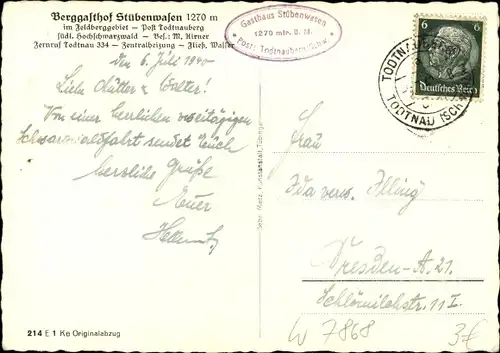 Berggasthof Stübenwasen 1270 m
im Feldberggebiet – Post Todtnauberg
südl. Hochschwarzwald – Bes.: M. Kirner
Fernruf Todtnau 334 – Zentralheizung – Fließ. Wasser
Gasthaus Stübenwasen
1270 mtr. ü. M.
Post: Todtnauberg
6 6
Deutsches Reich
TODTNAUBERG
TODTNAU (SCHW
den 6. Juli 1940
Liebe Mutter & Walter!
Von einer herrlichen zweitägigen
Schwarzwaldfahrt sendet Euch
herzliche Grüße
Euer
Gebr. Metz, Kunstanstalt, Tübingen
Frau
Ida verw. Illing
Dresden-A. 21.
Schlömilchstr. 11 I.
214 E 1 Ke Originalabzug
W 7868
3€